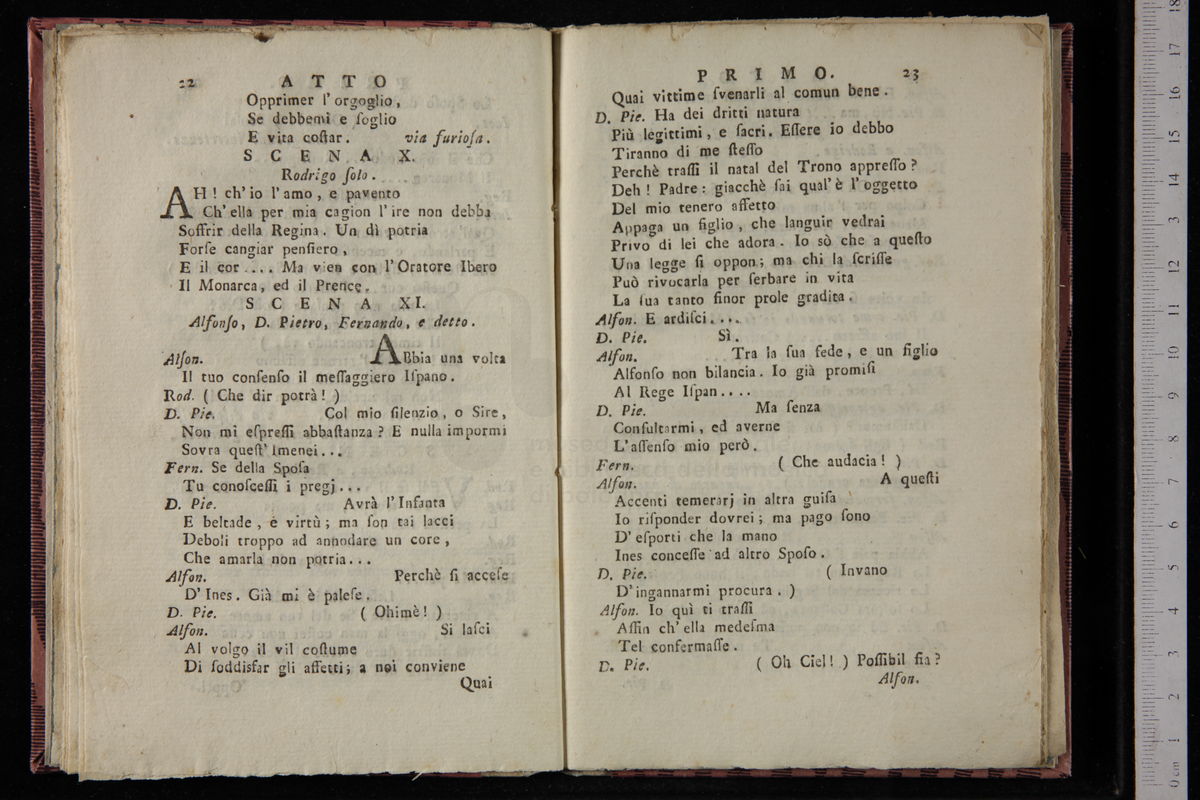 22 ATTO
Opprimer l'orgoglio,
Se debbemi e ſoglio
E vita coſtar. via furioſa.
SCENA X.
Rodrigo ſolo.
AH! ch'io l'amo, e pavento
Ch'ella per mia cagion l'ire non debba
Soffrir della Regina. Un dì potria
Forſe cangiar penſiero,
E il cor .... Ma vien con l'Oratore Ibero
Il Monarca, ed il Prence.
SCENA XI.
Alfonſo, D. Pietro, Fernando, e detto.
Alfon. ABbia una volta
Il tuo conſenſo il meſſaggiero Iſpano.
Rod. ( Che dir potrà! )
D. Pie. Col mio ſilenzio, o Sire,
Non mi eſpreſſi abbaſtanza? E nulla impormi
Sovra queſt' Imenei...
Fern. Se della Spoſa
Tu conoſceſſi i pregj...
D. Pie. Avrà l'Infanta
E beltade, e virtù; ma ſon tai lacci
Deboli troppo ad annodare un core,
Che amarla non potria...
Alfon. Perchè ſi acceſe
D'Ines. Già mi è paleſe.
D. Pie. ( Ohimè! )
Alfon. Si laſci
Al volgo il vil coſtume
Di ſoddisfar gli affetti; a noi conviene
Quai
PRIMO. 23
Quai vittime ſvenarli al comun bene.
D. Pie. Ha dei dritti natura
Più legittimi, e ſacri. Eſſere io debbo
Tiranno di me ſteſſo
Perchè traſſi il natal del Trono appreſſo?
Deh! Padre: giacchè ſai qual'è l'oggetto
Del mio tenero affetto
Appaga un figlio, che languir vedrai
Privo di lei che adora. Io sò che a queſto
Una legge ſi oppon; ma chi la ſcriſſe
Può rivocarla per ſerbare in vita
La ſua tanto finor prole gradita.
Alfon. E ardiſci....
D. Pie. Sì.
Alfon. Tra la ſua fede, e un figlio
Alfonſo non bilancia. Io già promiſi
Al Rege Iſpan....
D. Pie. Ma ſenza
Conſultarmi, ed averne
L'aſſenſo mio però.
Fern. ( Che audacia! )
Alfon. A queſti
Accenti temerarj in altra guiſa
Io riſponder dovrei; ma pago ſono
D'eſporti che la mano
Ines conceſſe ad altro Spoſo.
D. Pie. ( Invano
D'ingannarmi procura. )
Alfon. Io quì ti traſſi
Aſſin ch'ella medeſma
Tel confermaſſe.
D. Pie. ( Oh Ciel! ) Poſſibil ſia?
Alfon.